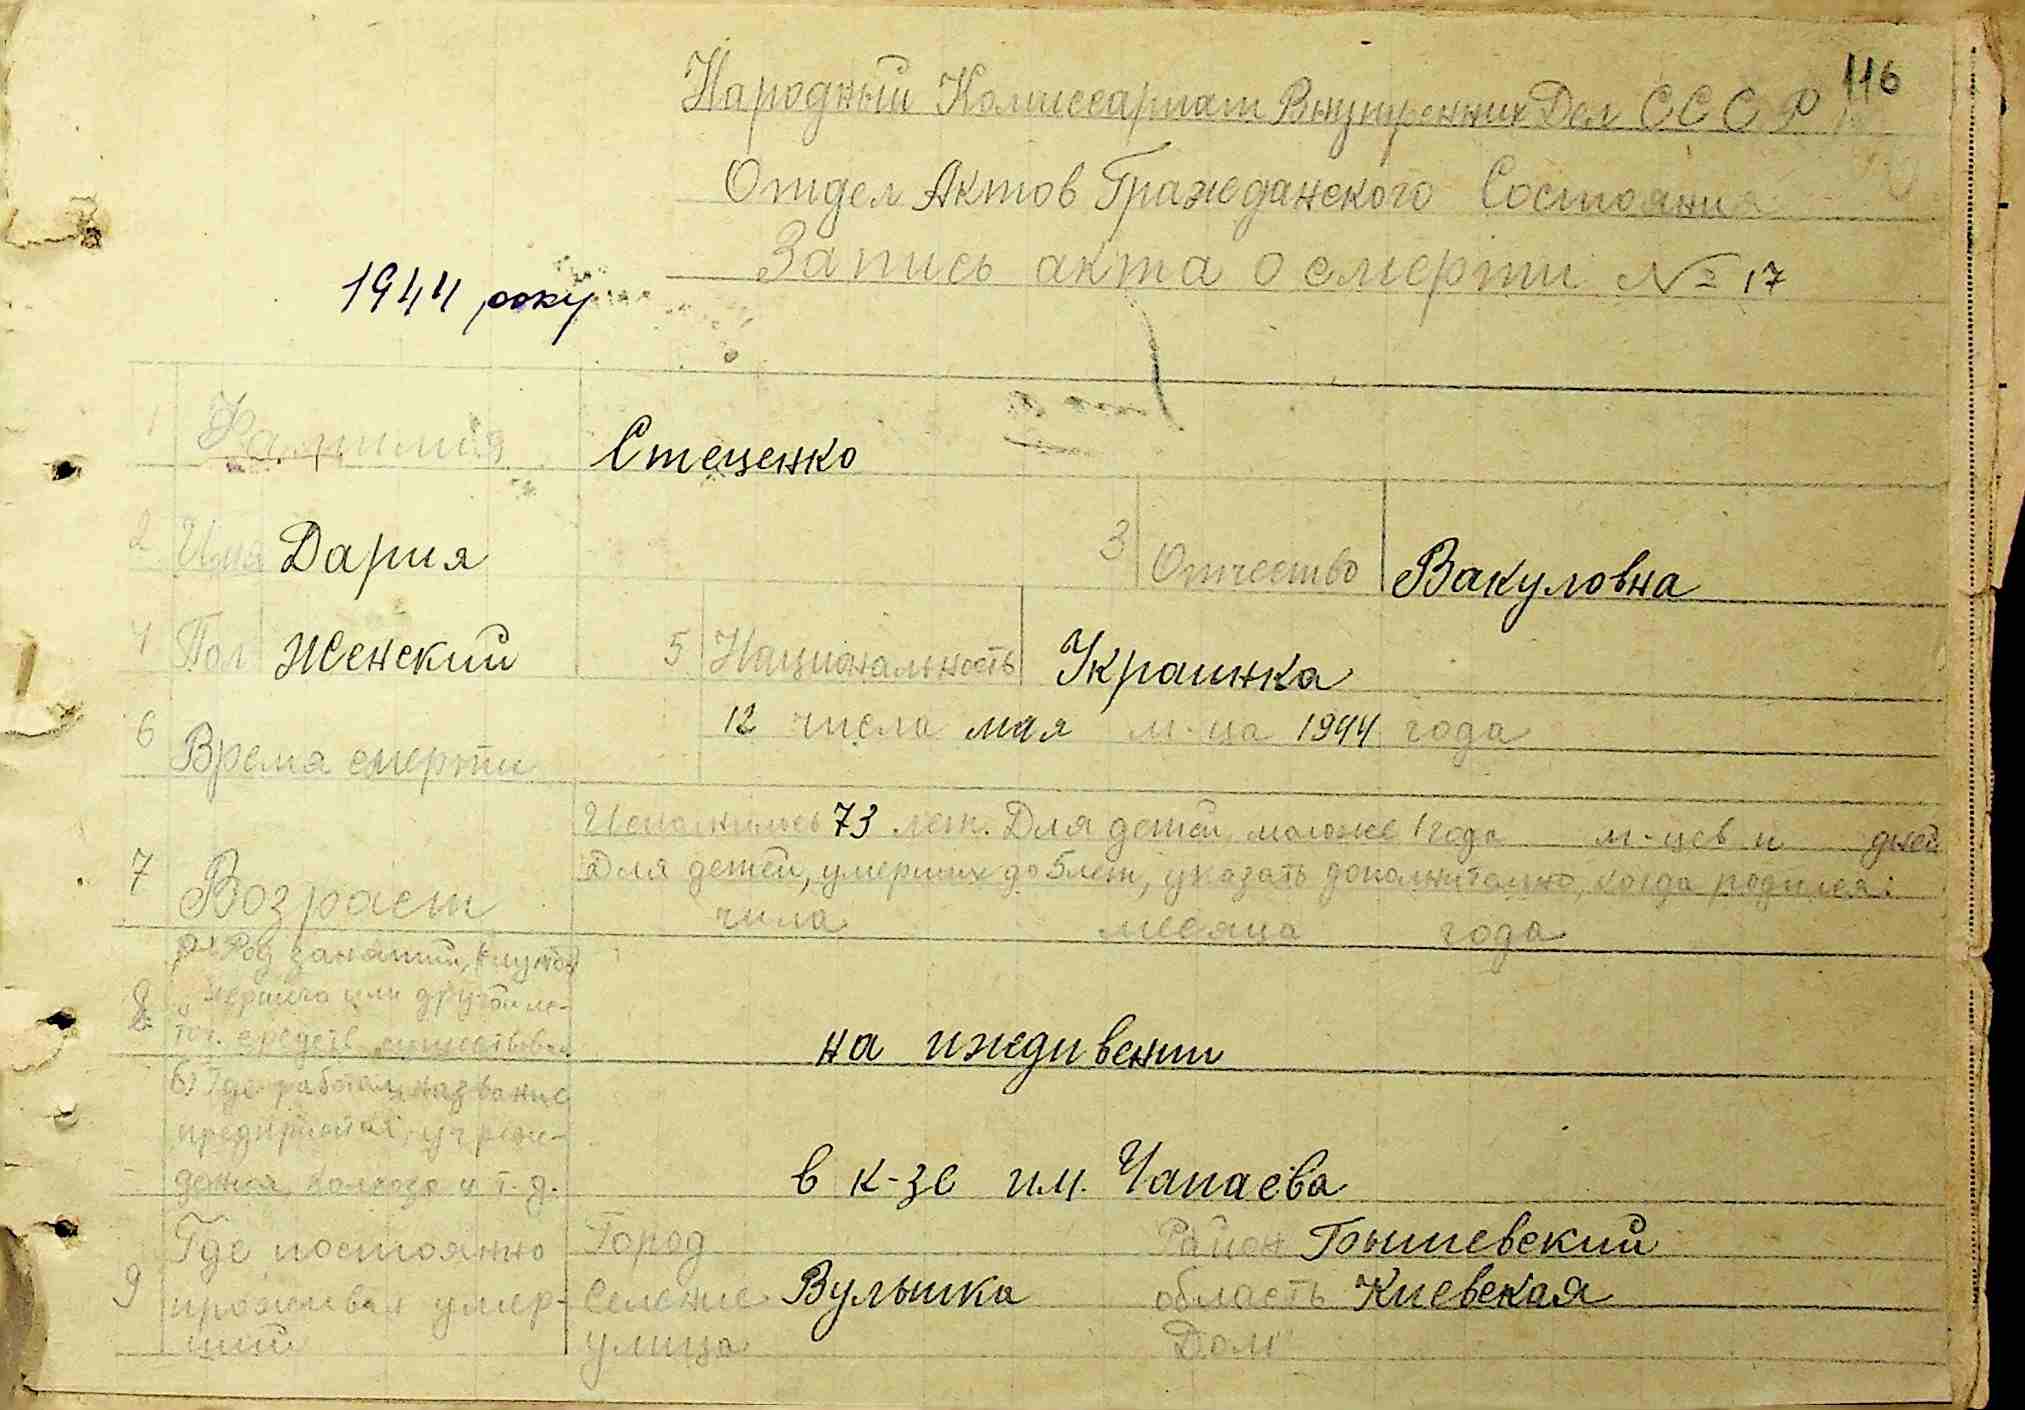 116
Народный Комиссариат Внутренних Дел СССР
Отдел Актов Гражданского Состояния
Запись акта о смерти № 17
1944 року
1 Фамилия Стеценко
2 Имя Дария 3 Отчество Вакуловна
4 Пол Женский 5 Национальность Украинка
6 Время смерти 12 числа мая м-ца 1944 года
Исполнилось 73 лет. Для детей моложе 1 года м-цев и дней
Для детей, умерших до 5 лет, указать дополнительно, когда родился:
7 Возраст числа месяца года
8 а) Род занятий,
или другой ис-
точ. средств существован
на иждивении
б) Где работал, название
предприятия, учреж-
дения, колхоза и т.д.
в к-зе им. Чапаева
9 Где постоянно Город Район Бышевский
проживал умер- Селение Вулшка область Киевская
ший улица Дом